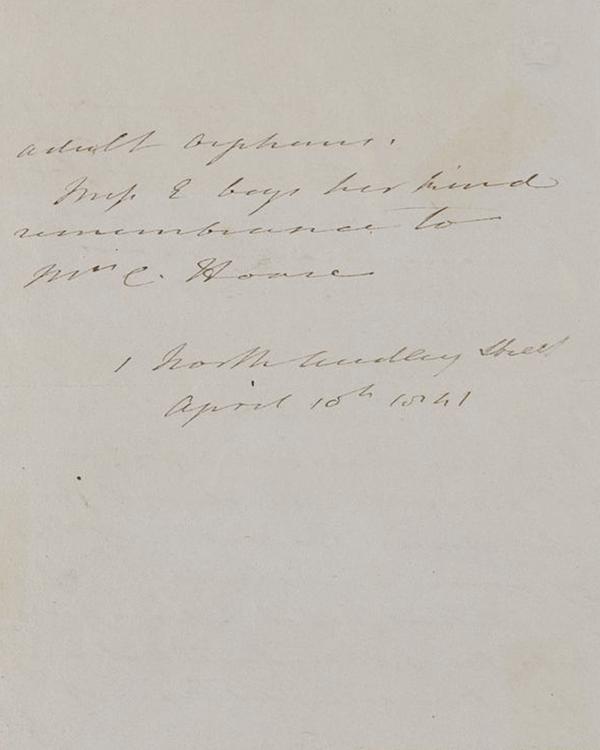 adult orphans.
Miss E begs her kind
remembrance to
Mrs C. Hoare
1 North Audley Street
April 10th 1841